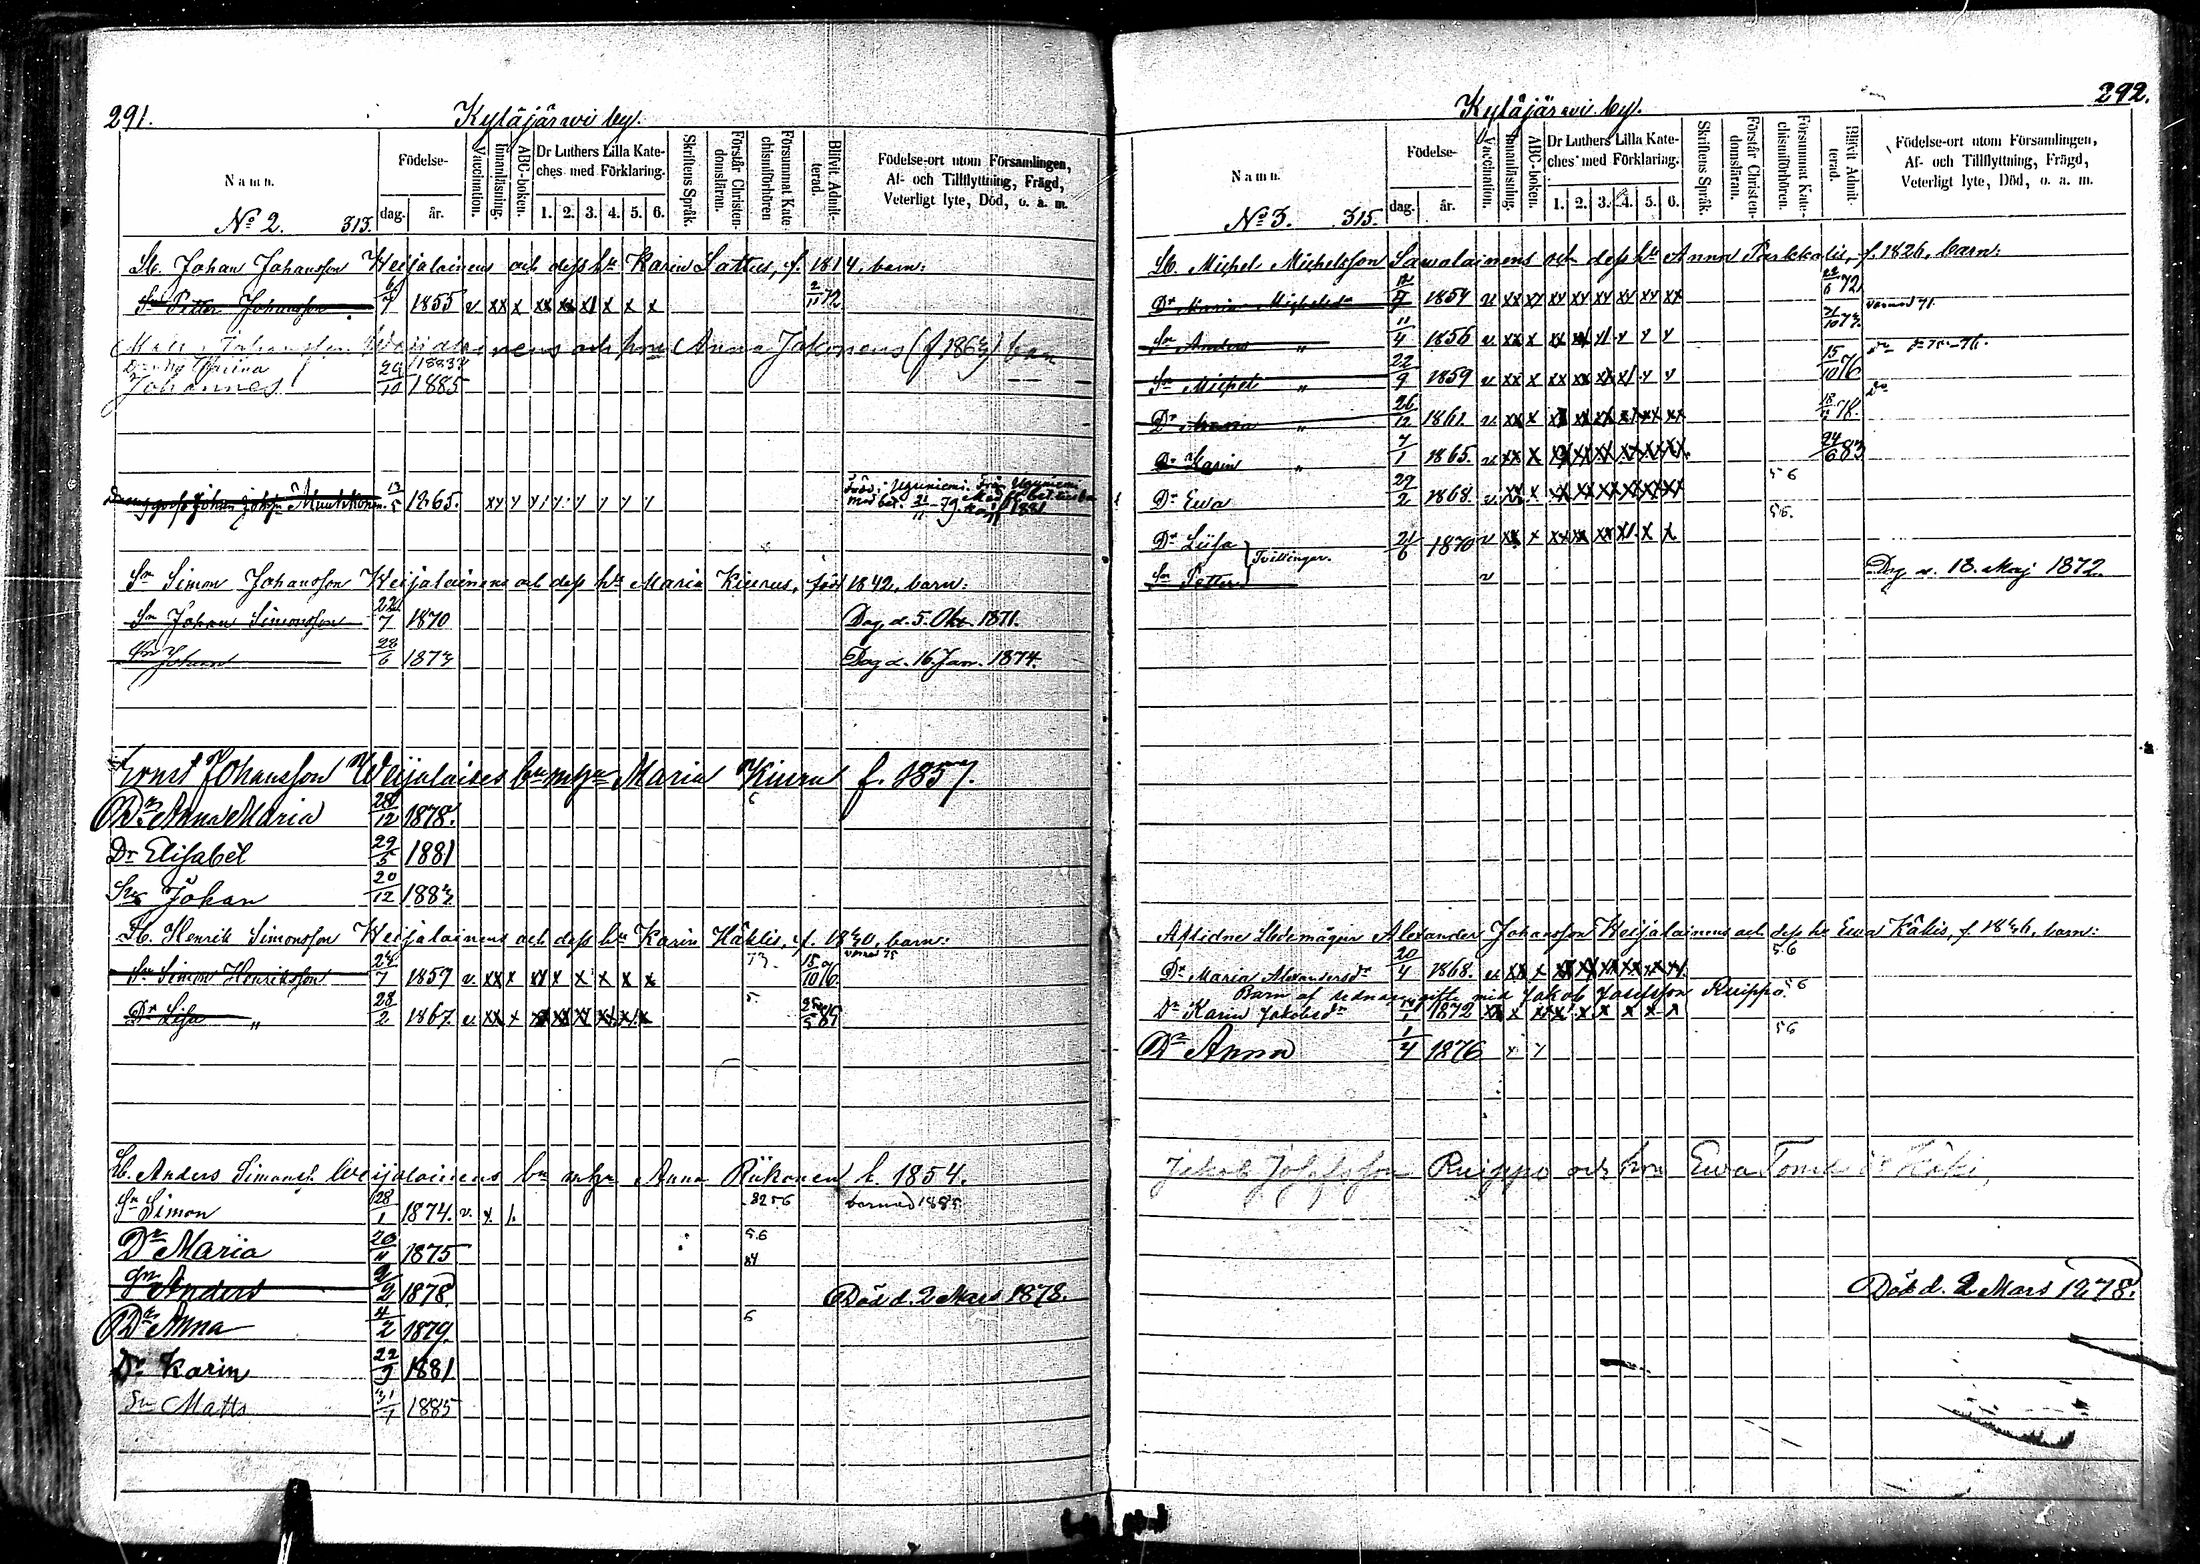 291.
Kyläjärwi by.
Namn.
Födelse-
dag.
år.
Vaccination.
Innanläsning.
ABC-boken.
Dr Luthers Lilla Kate-
ches med Förklaring.
1. 2. 3. 4. 5. 6.
Skriftens Språk.
Förstår Christen-
domsläran.
Försummat Kate-
chismiförhören
Blifvit Admit-
terad.
Födelse-ort utom Församlingen,
Af- och Tillflyttning, Frägd,
Veterligt lyte, Död, o. a. m.
No 2. 313.
Lb. Johan Johansson Weijalainens och dess hu Karin Lattus, f. 1814, barn:
Sn Petter Johansson 6/7 1855 v. xx x xx xx x1 x x x 2/11 72
Matts Johansson Weijalainens och hru Anna Jakonens (f 1862) barn
1883
Johannes 29/10 1885
Johan Muukkonen 13/5 1865.
Sn Simon Johansson Weijalainens och dess hu Maria Kiurus, född 1842, barn:
Sn Johan Simonsson 22/7 1870 Dog d. 5. Okt. 1871.
Sn Johan 28/6 1873 Dog d. 16. Jan. 1874.
Ernst Johansson Weijalaises bn m hu Maria Kiuru f. 1857.
Dr Anna Maria 28/12 1878.
Dr Elisabet 29/5 1881
Sn Johan 20/12 1883
Lb. Henrik Simonsson Weijalainens och dess hu Karin Häklis, f. 1830, barn:
Sn Simon Henriksson 24/7 1857 v. xx x x1 x x x x x 73. 15/10 76.
Dr Lisa " 28/2 1867. v. xx x 5. 25/5 84
Lb. Anders Simonss. Weijalainens bn m hu Anna Rükonen f. 1854.
Sn Simon 28/1 1874. v. x 1. 8256
Dr Maria 20/11 1875 56
84
Sn Anders 2/2 1878. Död d. 2 Mars 1878.
Dr Anna 4/2 1879. 6
Dr Karin 22/9 1881
Sn Matts 31/1 1885
292.
Kyläjärwi by.
Namn.
Födelse-
dag.
år.
Vaccination.
Innanläsning.
ABC-boken.
Dr Luthers Lilla Kate-
ches med Förklaring.
1. 2. 3. 4. 5. 6.
Skriftens Språk.
Förstår Christen-
domsläran.
Försummat Kate-
chismiförhören.
Blifvit Admit-
terad.
Födelse-ort utom Församlingen,
Af- och Tillflyttning, Frägd,
Veterligt lyte, Död, o. a. m.
No 3. 315.
Lb. Michel Michelsson Sawolainens och dess hu Anna Parkkolis, f. 1826, barn:
Dr Maria Michelsdr 12/7 1854 v. xx xx xx xx xx xx xx xx 22/6 72
Sn Anders " 11/4 1856 v. xx x xx 21/10 73.
Sn Michel " 22/9 1859 v. xx x xx xx xx x1 x x 15/10 76
Dr Anna " 26/12 1861. v. xx x 78.
Dr Karin " 7/1 1865. v. xx x 24/6 83
Dr Ewa 29/2 1868. v. xx x 56
Dr Liisa 21/6 1870 v xx x xx xx xx x1 x x 56.
Tvillingar.
Sn Petter v Dog d. 18. Maj 1872.
Aflidne Alexander Johansson Weijalainens och dess hu Ewa Käkis, f. 1846, barn:
Dr Maria Alexandersdr 20/4 1868. v. xx x 56
Barn af sednare gifte med Jakob Josefsson Ruippo. 56
Dr Karin Jakobsdr 1872
Dr Anna 1/4 1876 x x 56
Jakob Josefsson Ruippo och hru Ewa
Död d. 2 Mars 1878.